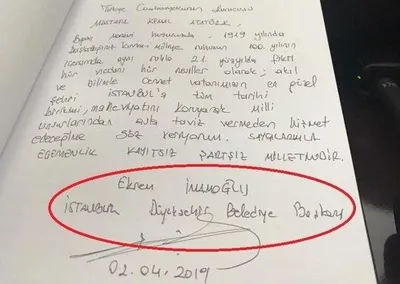 Türkiye Cumhuriyetinin Kurucusu
MUSTAFA KEMAL ATATÜRK,
manevi huzurunuzda, 1919 yılında
kuvayi milliye ruhunun 100. yılının
aynı ruhla 21. yüzyılda fikri
hür vicdanı hür nesiller olarak; akıl
ve bilimle cennet vatanımızın en güzel
şehri İSTANBUL'a tüm tarihi
birikimi, maneviyatını koruyarak milli
unsurlarından asla taviz vermeden hizmet
edeceğime SÖZ veriyorum. SAYGILARIMLA
EGEMENLİK KAYITSIZ ŞARTSIZ MİLLETİNDİR.
Ekrem İMAMOĞLU
İSTANBUL Büyükşehir Belediye Başkanı
02.04.2019